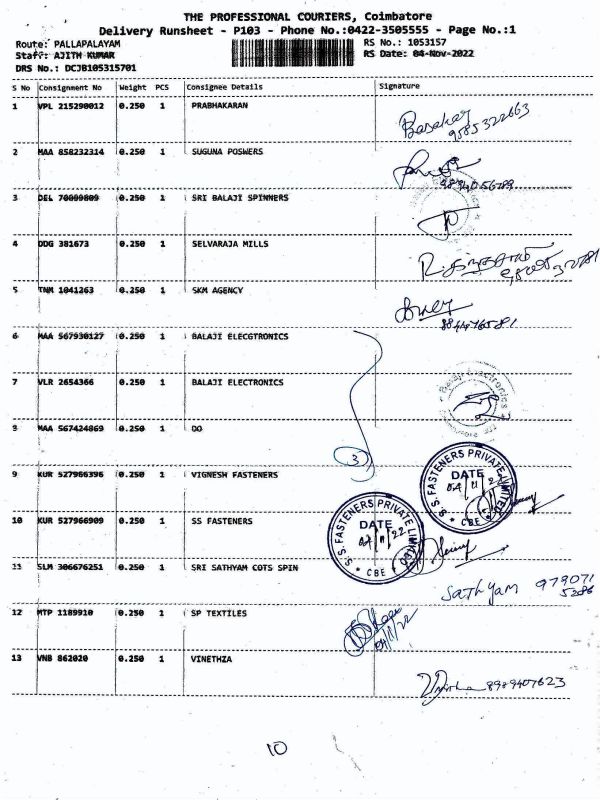 THE PROFESSIONAL COURIERS, Coimbatore
Delivery Runsheet - P103 - Phone No.:0422-3505555 - Page No.:1
Route: PALLAPALAYAM
RS No.: 1053157
Staff: AJITH KUMAR
RS Date: 04-Nov-2022
DRS No.: DCJB105315701
S No Consignment No Weight PCS Consignee Details Signature
1 VPL 215290012 0.250 1 PRABHAKARAN
9585322663
2 MAA 858232314 0.250 1 SUGUNA POSWERS
3 DEL 70699809 0.250 1 SRI BALAJI SPINNERS
4 DDG 381673 0.250 1 SELVARAJA MILLS
5 TNM 1041263 0.250 1 SKM AGENCY
6 MAA 567930127 0.250 1 BALAJI ELECGTRONICS
7 VLR 2654366 0.250 1 BALAJI ELECTRONICS
Balaji Electronics
8 MAA 567424869 0.250 1 DO
3
9 KUR 527966396 0.250 1 VIGNESH FASTENERS
S.S. FASTENERS PRIVATE LIMITED
DATE
04/11/22
CBE
10 KUR 527966909 0.250 1 SS FASTENERS
S.S. FASTENERS PRIVATE LIMITED
DATE
04/11/22
CBE
11 SLM 306676251 0.250 1 SRI SATHYAM COTS SPIN
Sathyam 979071
5286
12 MTP 1189910 0.250 1 SP TEXTILES
13 VNB 862020 0.250 1 VINETHZA
8989407623
10